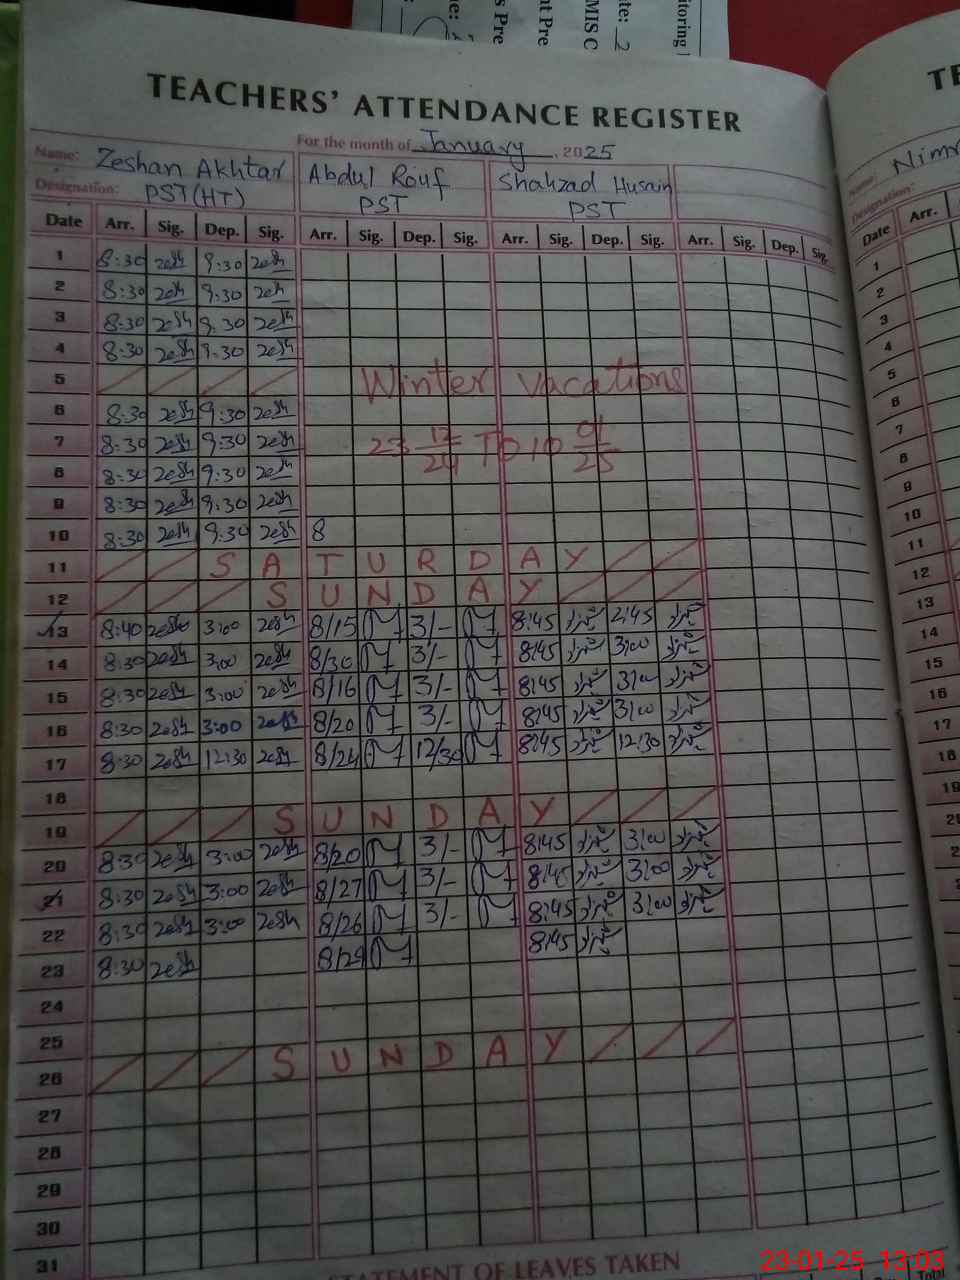 TEACHERS' ATTENDANCE REGISTER
For the month of January, 2025
Name: Zeshan Akhtar Abdul Rouf Shahzad Husain
Designation: PST(HT) PST PST
Date Arr. Sig. Dep. Sig. Arr. Sig. Dep. Sig. Arr. Sig. Dep. Sig. Arr. Sig. Dep. Sig.
1 8:30 9:30
2 8:30 9:30
3 8:30 9:30
4 8:30 9:30
5 Winter vacations
6 8:30 9:30
7 8:30 9:30 23 12/24 TO 10 01/25
8 8:30 9:30
9 8:30 9:30
10 8:30 9:30 8
11 SATURDAY
12 SUNDAY
13 8:40 3:00 8/15 3/- 8:45 2:45
14 8:30 3:00 8/30 3/- 8:45 3:00
15 8:30 3:00 8/16 3/- 8:45 3:00
16 8:30 3:00 8/20 3/- 8:45 3:00
17 8:30 12:30 8/24 12/30 8:45 12:30
18
19 SUNDAY
20 8:30 3:00 8/20 3/- 8:45 3:00
21 8:30 3:00 8/27 3/- 8:45 3:00
22 8:30 3:00 8/26 3/- 8:45 3:00
23 8:30 8/29 8:45
24
25
26 SUNDAY
27
28
29
30
31
STATEMENT OF LEAVES TAKEN
Name:
Designation:
Date Arr.
1
2
3
4
5
6
7
8
9
10
11
12
13
14
15
16
17
18
19
23-01-25 13:03